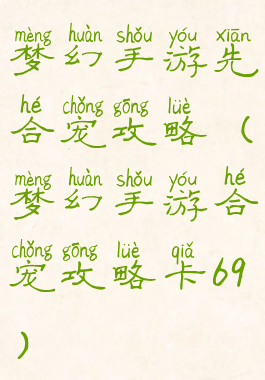 mèng huàn shǒu yóu xiān
梦幻手游先
hé chǒng gōng lüè
合宠攻略（
mèng huàn shǒu yóu hé
梦幻手游合
chǒng gōng lüè qiǎ
宠攻略卡69
）